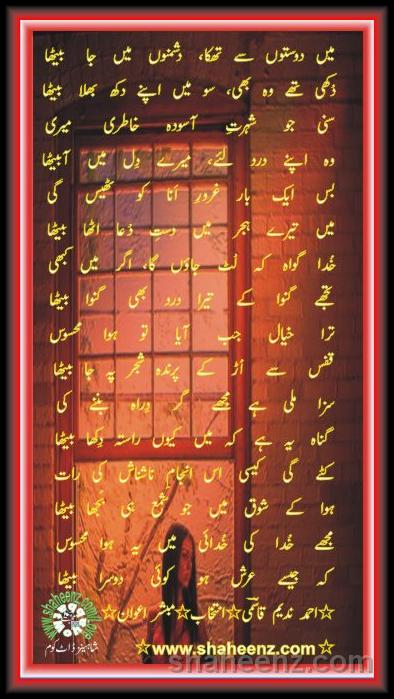 میں دوستوں سے تھکا، دشمنوں میں جا بیٹھا
دُکھی تھے وہ بھی، سو میں اپنے دکھ بھلا بیٹھا
سنی جو شہرتِ آسودہ خاطری میری
وہ اپنے درد لئے، میرے دِل میں آ بیٹھا
بس ایک بار غرورِ اَنا کو ٹھیس لگی
میں تیرے ہجر میں دستِ دُعا اٹھا بیٹھا
خُدا گواہ کہ لُٹ جاؤں گا، اگر میں کبھی
تجھے گنوا کے تیرا درد بھی گنوا بیٹھا
ترا خیال جب آیا تو ہوا محسوس
قفس سے اُڑ کے پرندہ شجر پہ جا بیٹھا
سزا ملی ہے مجھے گردِ راہ بننے کی
گناہ یہ ہے کہ میں کیوں راستہ دِکھا بیٹھا
کٹے گی کیسی اس انجامِ ناشناس کی رات
ہوا کے شوق میں جو شمع ہی بُجھا بیٹھا
مجھے خُدا کی خُدائی میں یہ ہوا محسوس
کہ جیسے عرش پہ ہو کوئی دوسرا بیٹھا
☆احمد ندیم قاسمی☆انتخاب☆مبشر اعوان☆
شاہینز ڈاٹ کوم
☆www.shaheenz.com☆
shaheenz.com